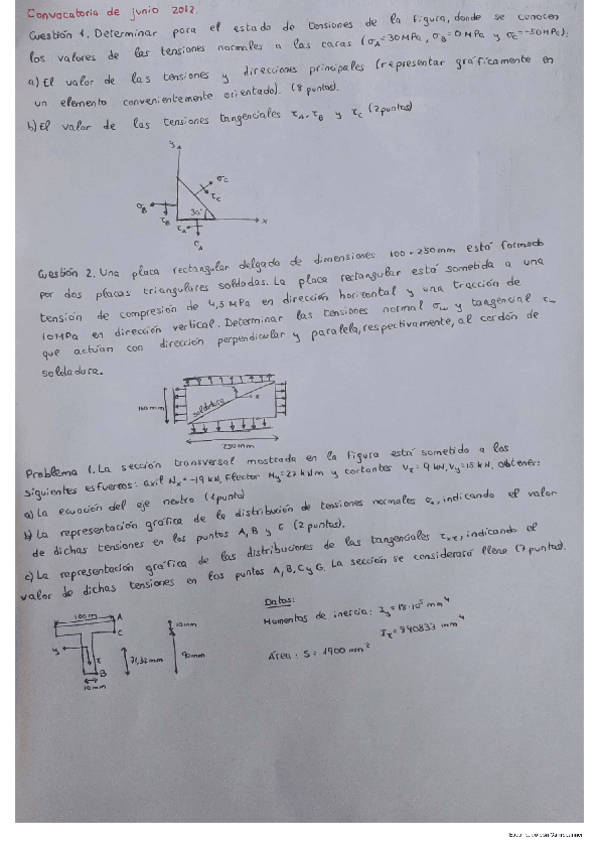 Convocatoria de junio 2012.
Cuestión 1. Determinar para el estado de tensiones de la figura, donde se conocen
los valores de las tensiones normales a las caras (σA=30MPa, σB=0MPa y σC=-50MPa):
a) El valor de las tensiones y direcciones principales (representar gráficamente en
un elemento convenientemente orientado). (8 puntos).
b) El valor de las tensiones tangenciales τA, τB y τC (2 puntos)
y
σC
τC
σB
τB
30°
x
τA
σA
Cuestión 2. Una placa rectangular delgada de dimensiones 100 × 250mm está formada
por dos placas triangulares soldadas. La placa rectangular está sometida a una
tensión de compresión de 4,5 MPa en dirección horizontal y una tracción de
10MPa en dirección vertical. Determinar las tensiones normal σw y tangencial τw
que actúan con dirección perpendicular y paralela, respectivamente, al cordón de
soldadura.
soldadura
x
250mm
Problema 1. La sección transversal mostrada en la figura está sometido a los
siguientes esfuerzos: axil Nx=-19 kN, flector My=27 kNm y cortantes Vz=9 kN, Vy=15 kN, obtener:
a) La ecuación del eje neutro (1 punto)
b) La representación gráfica de la distribución de tensiones normales σx, indicando el valor
de dichas tensiones en los puntos A, B y C (2 puntos).
c) La representación gráfica de las distribuciones de las tangenciales indicando el
valor de dichas tensiones en los puntos A, B, C y G. La sección se considerará llena (7 puntos).
A
C
y
z
B
10mm
71,32mm
10mm
90mm
Datos:
Momentos de inercia:
Área: S=1900 mm²